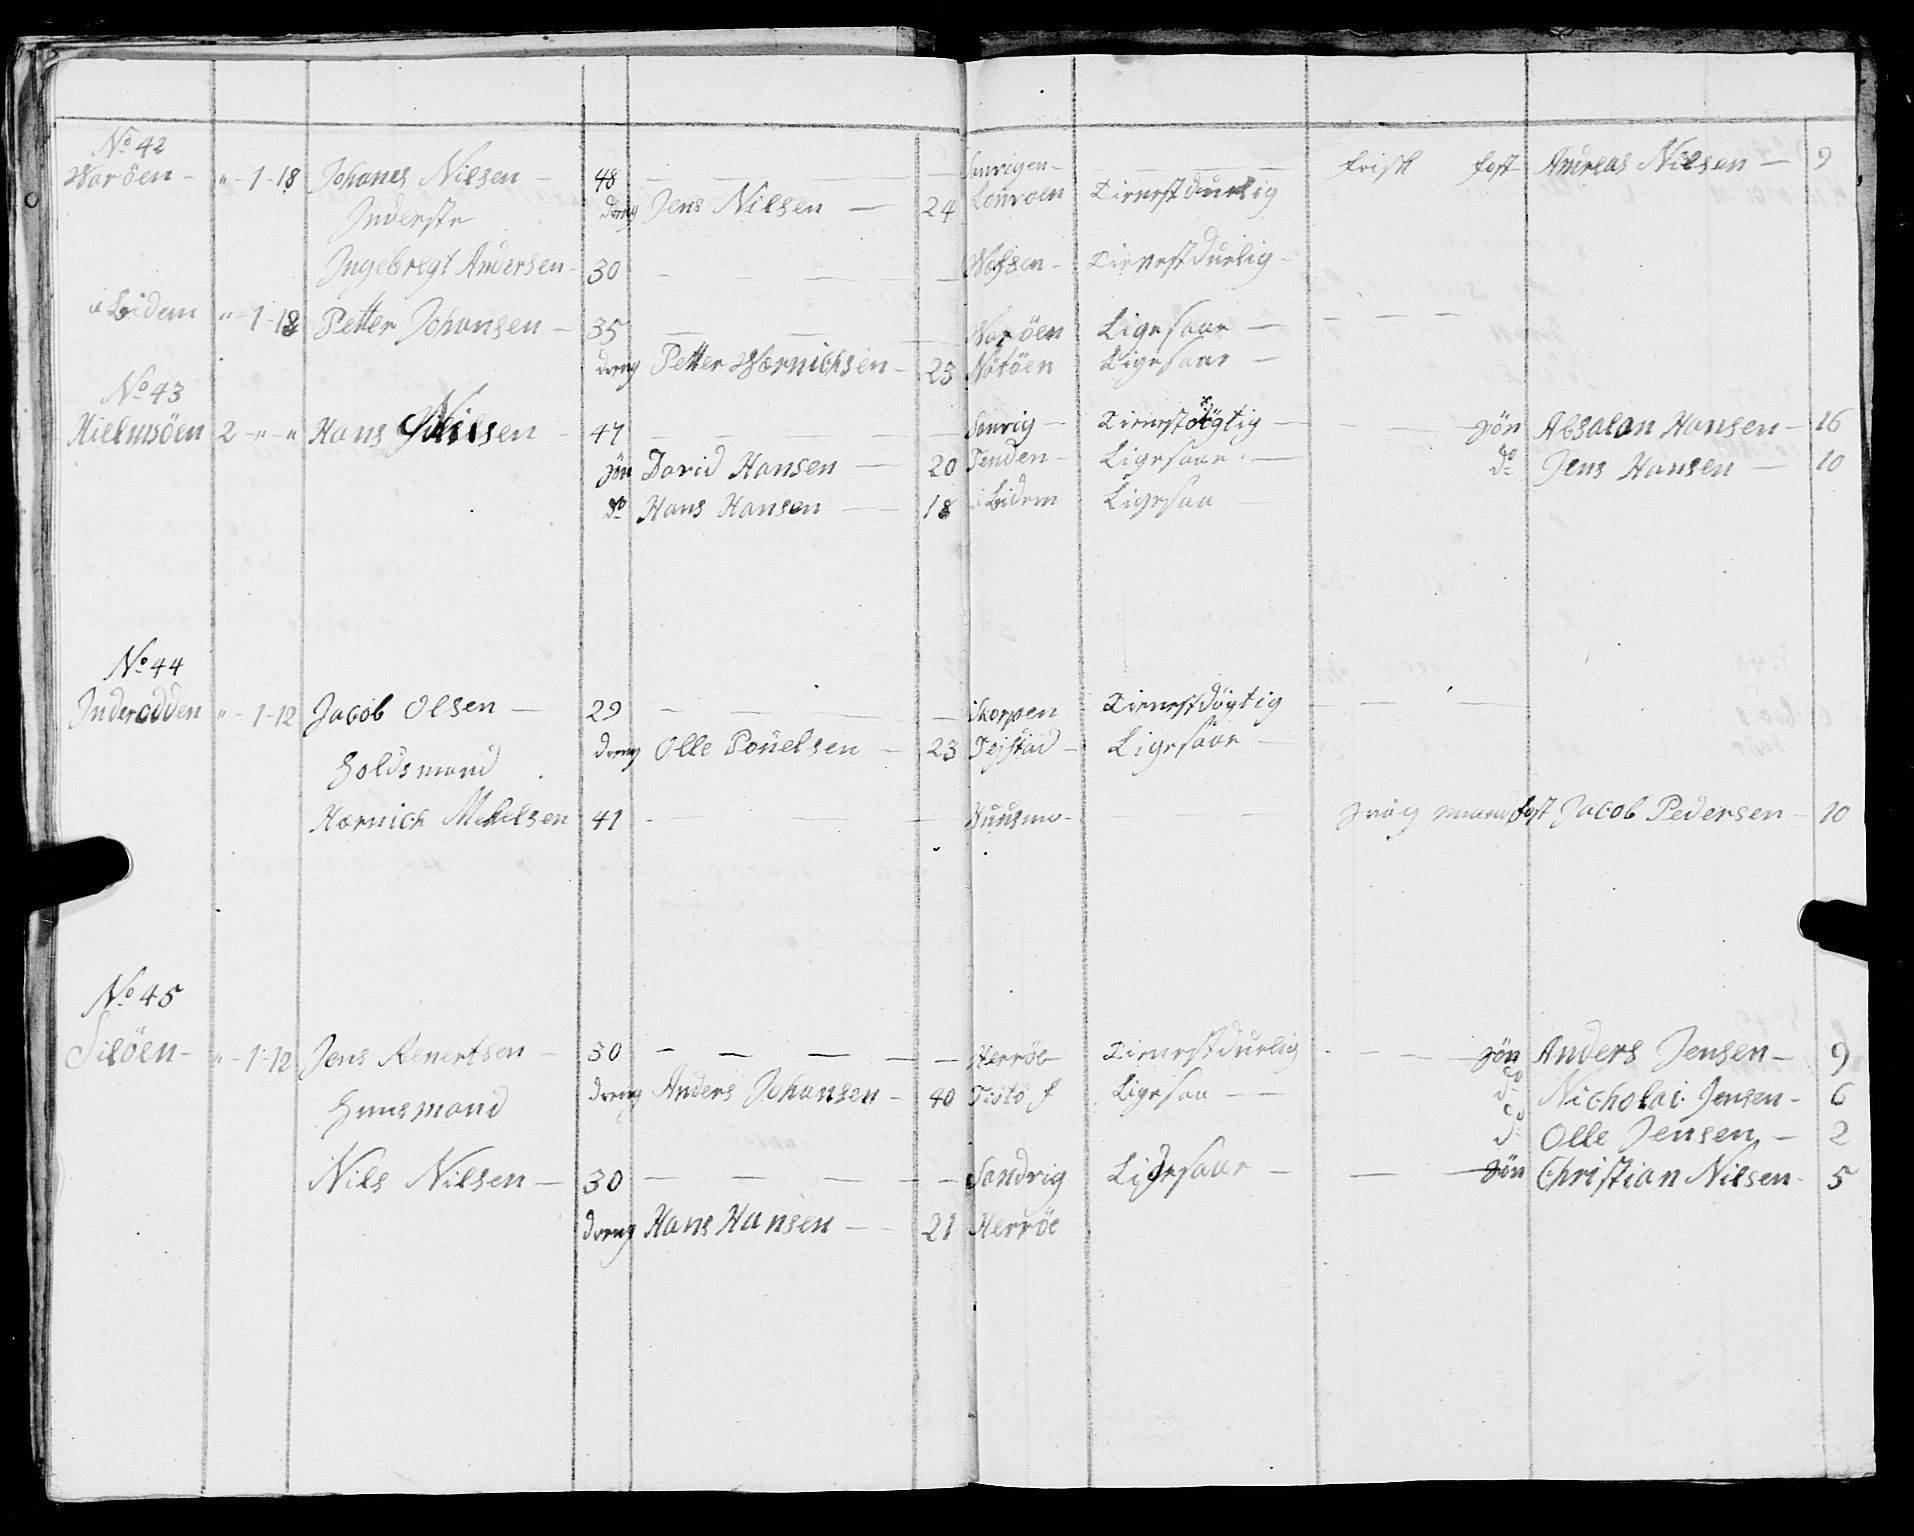 No 42
Waröen - " - 1 - 18 Johanes Nilsen - 48 Sanrigen - frisk fost Andreas Nilsen - 9
Inderste dreng Jens Nilsen - 24 Tienestduelig
Ingebregt Andersen - 30 Tienestduelig -
ibidem " - 1 - 18 Petter Johansen - 35 Waröen Ligesaae -
dreng Petter Wærnichsen - 23 Nötöen Ligesaae -
No 43
Hielmsöen 2 - " - " Hans Nilsen - 47 Sanrig - Tienestdögtig - søn Absalon Hansen - 16
søn David Hansen - 20 Tenden - Ligesaae - do Jens Hansen - 10
do Hans Hansen - 18 ibidem Ligesaa
No 44
Inderodden " - 1 - 12 Jacob Olsen - 29 Skorpen Tienestdöygtig
dreng Olle Pouelsen - 23 Tejstad - Ligesaae -
Holdsmand
Hærnich Mekelsen 41 Huusmo - svag mand fost Jacob Pedersen - 10
No 45
Silöen - " - 1 - 12 Jens Renertsen - 30 Herröe Tienestduelig - søn Anders Jensen - 9
dreng Anders Johansen - 40 Ligesaa - do Nicholai Jensen - 6
Huusmand do Olle Jensen - 2
Nils Nilsen - 30 Sandrig Ligesaae - søn Christian Nilsen - 5
dreng Hans Hansen - 21 Herröe